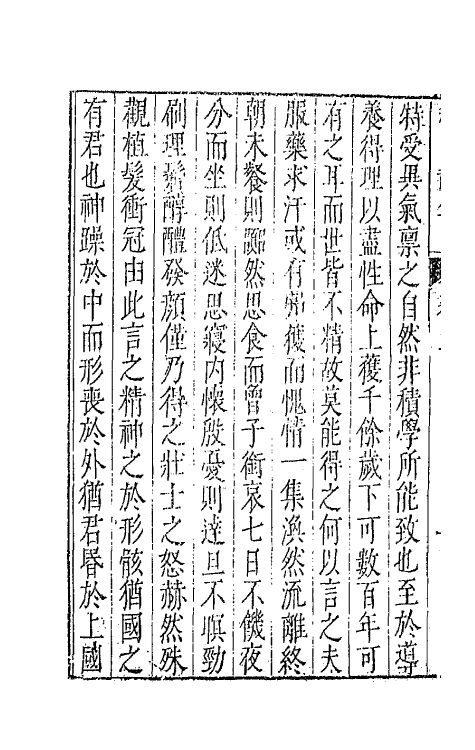 特受異氣禀之自然非積學所能致也至於導
養得理以盡性命上獲千餘歲下可數百年可
有之耳而世皆不精故莫能得之何以言之夫
服藥求汗或有弗獲而愧情一集渙然流離終
朝未餐則嚻然思食而曾子銜哀七日不饑夜
分而坐則低迷思寢内懷殷憂則達旦不瞑勁
刷理鬢醇醴發顔僅乃得之壯士之怒赫然殊
觀植髮衝冠由此言之精神之於形骸猶國之
有君也神躁於中而形喪於外猶君昬於上國